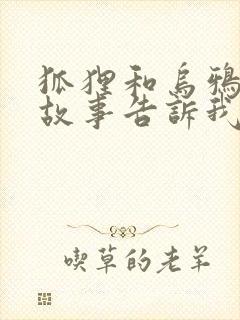 狐狸和烏鴉
故事告訴我
喫草的老羊